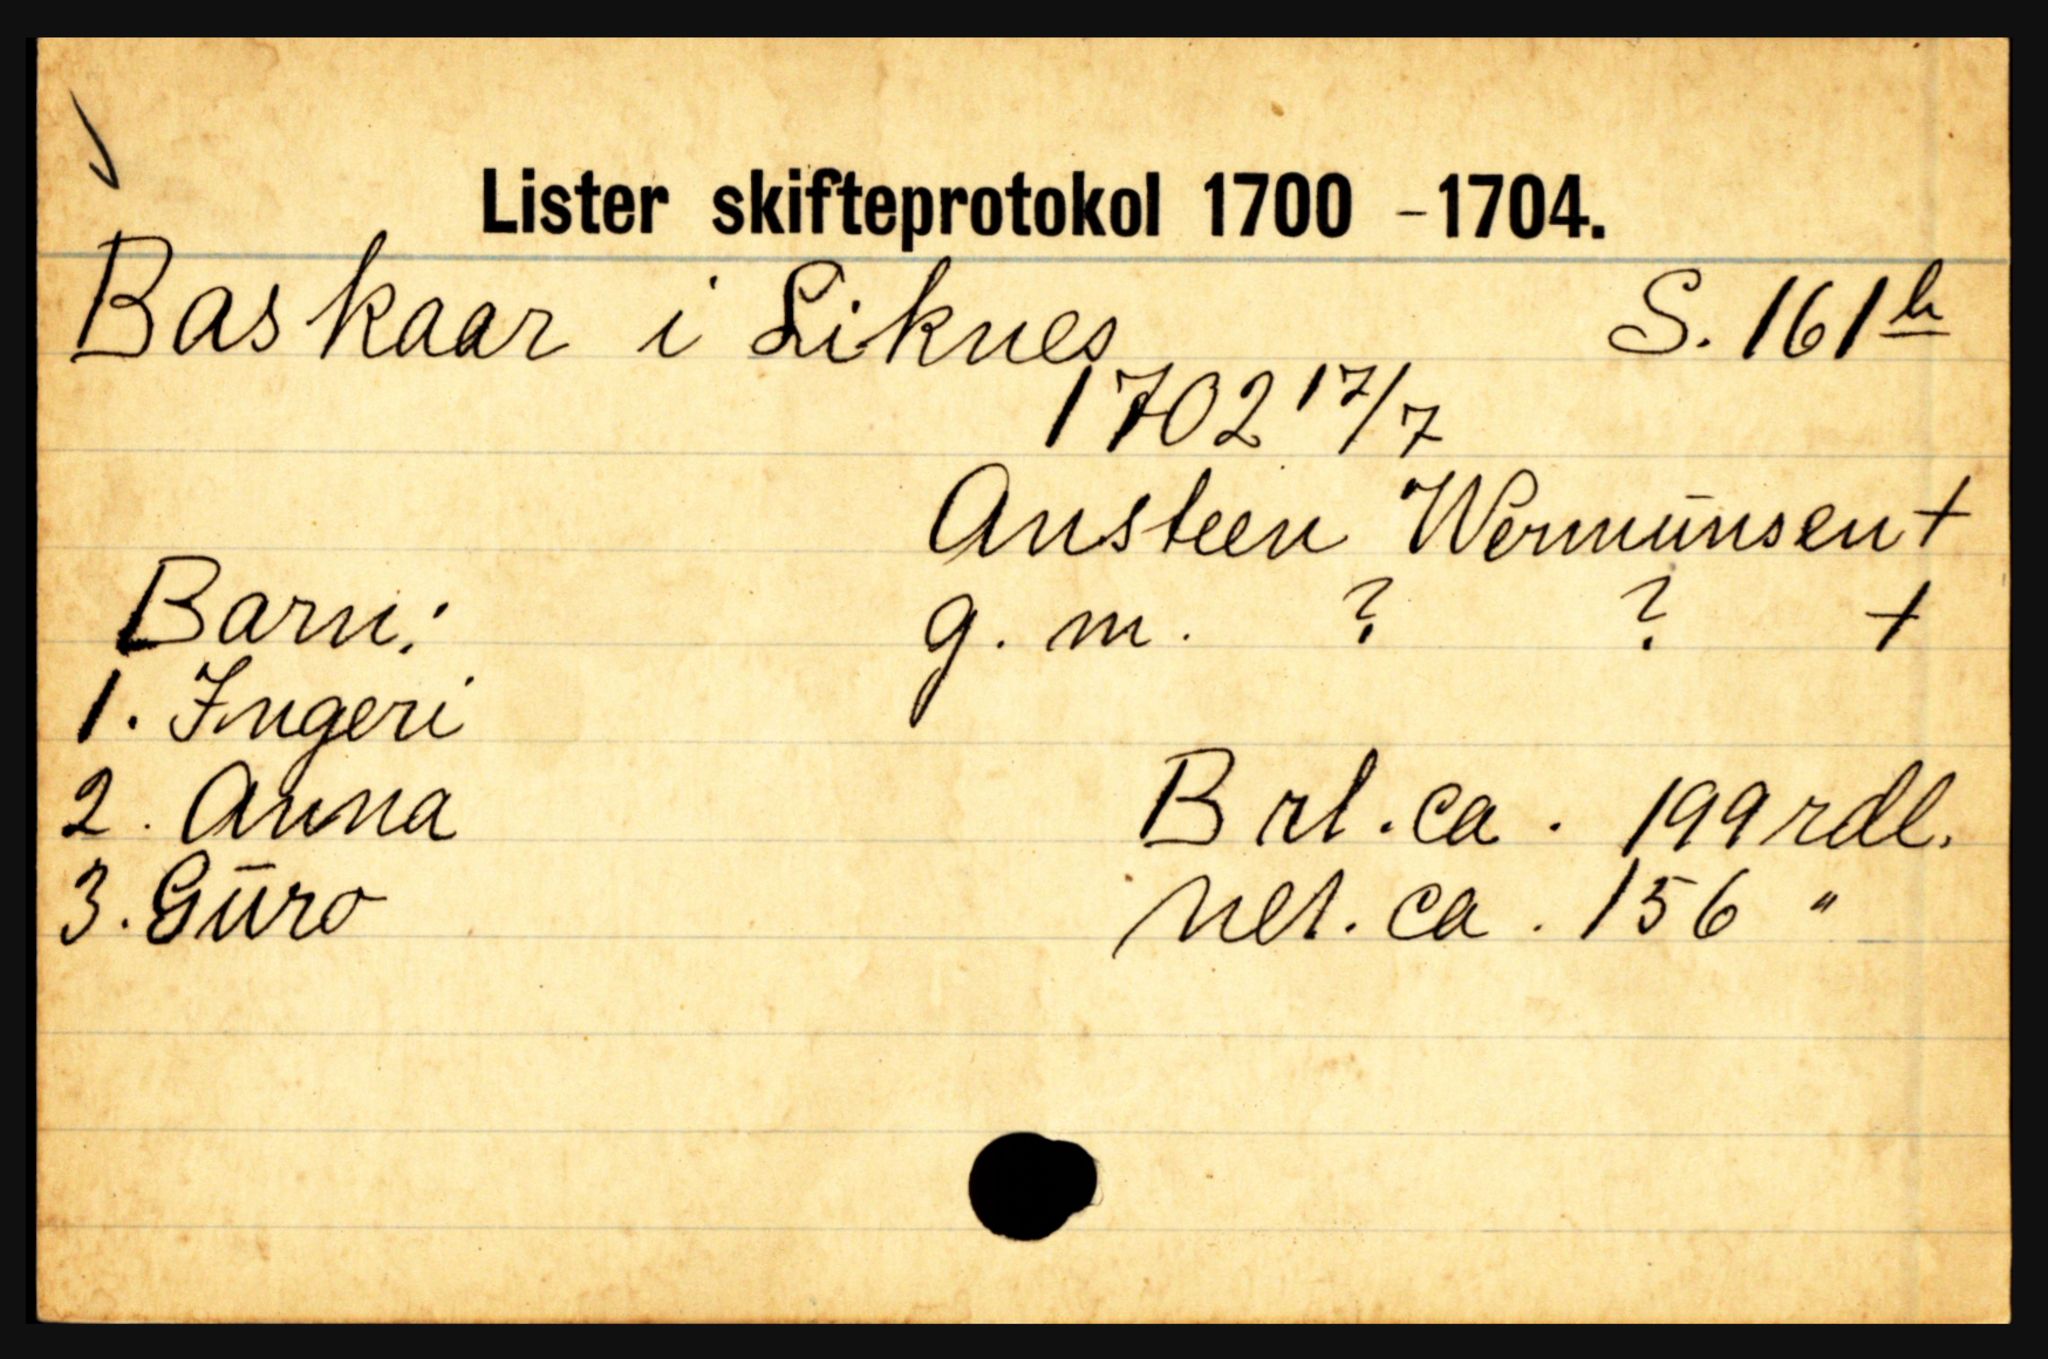 Lister skifteprotokol 1700 - 1704.
Baskaar i Liknes S. 161b
1702 17/7
Ansteen Wermūnsen +
Barn: g. m. ? ? +
1. Ingeri
2. Anna Brt. ca. 199 rdl.
3. Gūro net. ca. 156 "